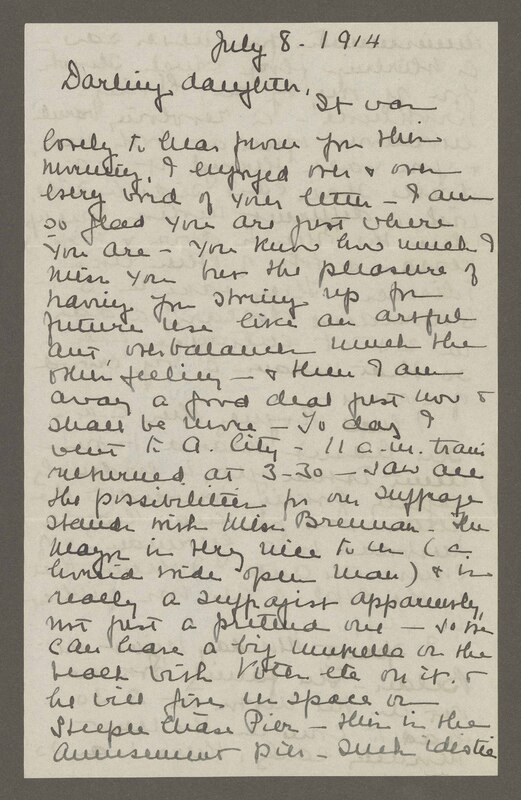 July 8. 1914
Darling daughter,
It was
lovely to hear from you this
morning, I enjoyed over & over
every word of your letter - I am
so glad you are just where
you are - You know how much I
miss you but the pleasure of
having you storing up for
future use like an artful
ant, overbalances much the
other feeling - & then I am
away a good deal just now &
shall be more - To day I
went to A. City - 11 a.m. train
returned at 3-30 - saw all
the possibilities for our suffrage
stands with Miss Brennan. The
Mayor is very nice to us (a
horrid wide open man) & is
really a suffragist apparently,
not just a pretend one - So we
can have a big umbrella on the
beach with Votes etc on it. &
he will give us space on
Steeple Chase Pier - this is the
amusement pier - such idiotic